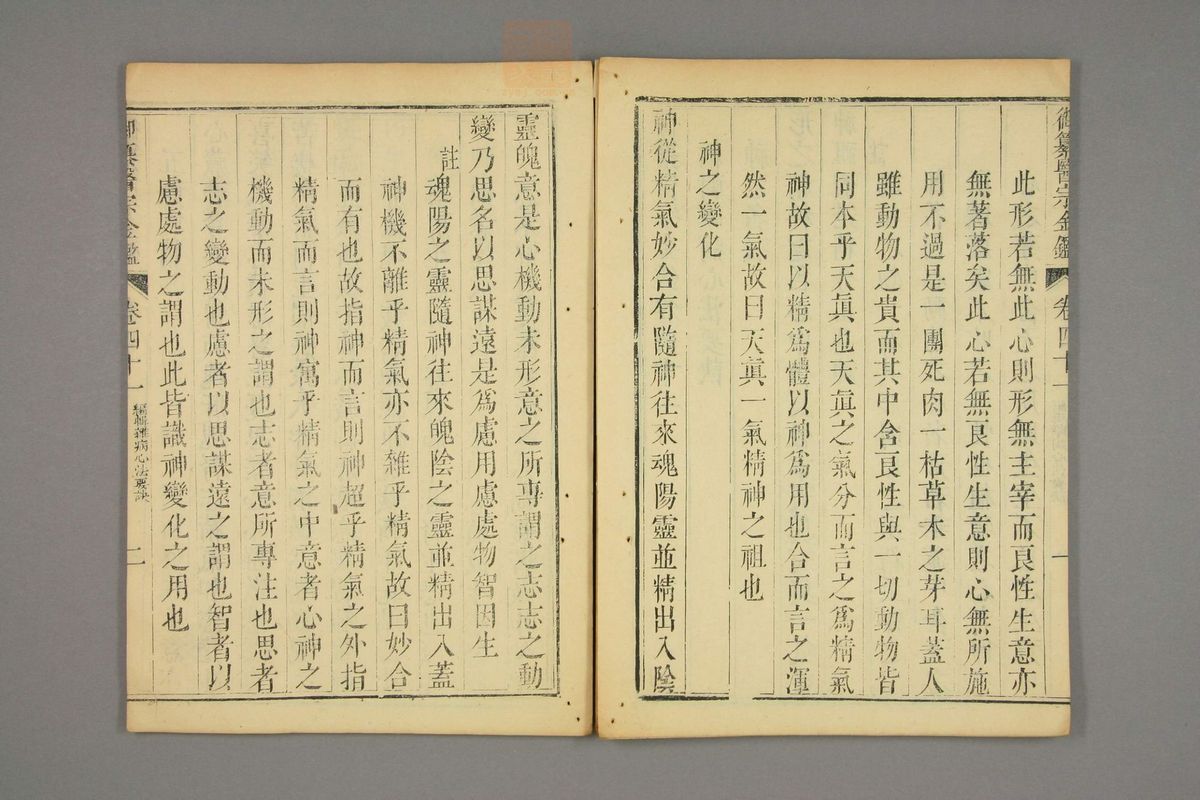 御纂醫宗金鑑 卷四十一 一
此形若無此心則形無主宰而良性生意亦
無著落矣此心若無良性生意則心無所施
用不過是一團死肉一枯草木之芽耳蓋人
雖動物之貴而其中含良性與一切動物皆
同本乎天眞也天眞之氣分而言之爲精氣
神故曰以精爲體以神爲用也合而言之渾
然一氣故曰天眞一氣精神之祖也
神之變化
神從精氣妙合有隨神往來魂陽靈並精出入陰
靈魄意是心機動未形意之所專謂之志志之動
變乃思名以思謀遠是爲慮用慮處物智因生
註
魂陽之靈隨神往來魄陰之靈並精出入蓋
神機不離乎精氣亦不雜乎精氣故曰妙合
而有也故指神而言則神超乎精氣之外指
精氣而言則神寓乎精氣之中意者心神之
機動而未形之謂也志者意所專注也思者
志之變動也慮者以思謀遠之謂也智者以
慮處物之謂也此皆識神變化之用也
御纂醫宗金鑑 卷四十一 編輯雜病心法要訣 二